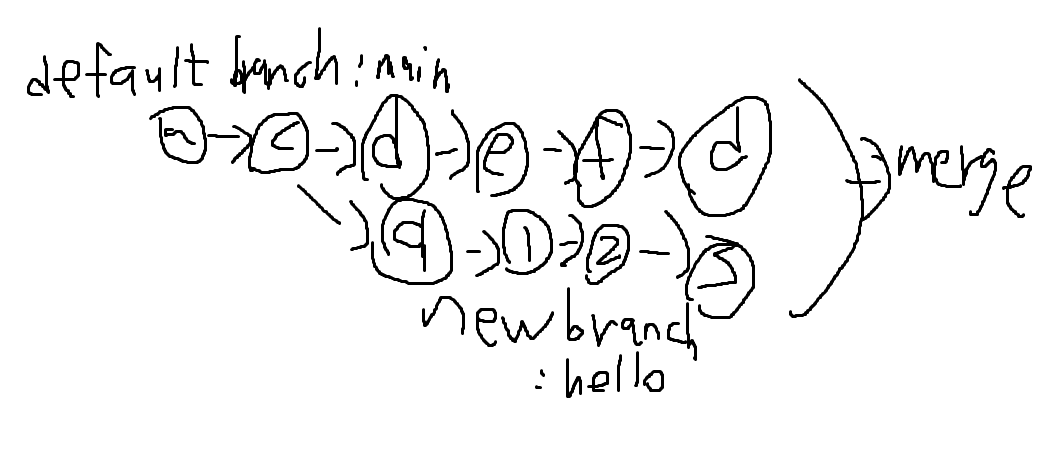 default branch: main
a → c → d → e → f → d
→ merge
→ q → 1 → 2 → 3
new branch
: hello